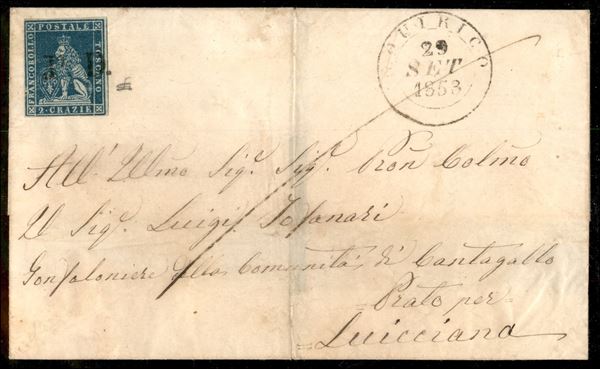 FRANCOBOLLO
POSTALE
TOSCANO
2 CRAZIE
P. D.
S. QUIRICO
29
SET
1853
All' Illmo Sigr. Sigr. Pron Colmo
Il Sigr. Luigi
Gonfaloniere della Comunità di Cantagallo
Prato per
Luicciana